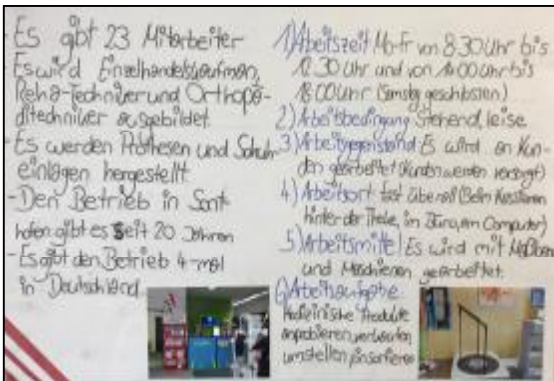 - Es gibt 23 Mitarbeiter
- Es wird Einzelhandelskaufman,
Reha-Techniker und Orthopä-
ditechniker ausgebildet.
- Es werden Prothesen und Schuh-
einlagen hergestellt
- Den Betrieb in Sont-
hofen gibt es seit 20 Jahren
- Es gibt den Betrieb 4-mal
in Deutschland
1) Arbeitszeit Mo-Fr von 8:30 Uhr bis
12.30 Uhr und von 14:00 Uhr bis
18:00 Uhr (Samstag geschlossen)
2) Arbeitsbedingung Stehend, leise
3) Arbeitsgegenstand Es wird an Kun-
den gearbeitet (Kunden werden versorgt)
4) Arbeitsort fast überall (Beim Kassieren
hinter der Theke, im Büro, am Computer)
5) Arbeitsmittel Es wird mit Maßband
und Maschienen gearbeitet.
6) Arbeitsaufgabe:
Medizinische Produkte
anprobieren, verkaufen
umstellen, einsortieren